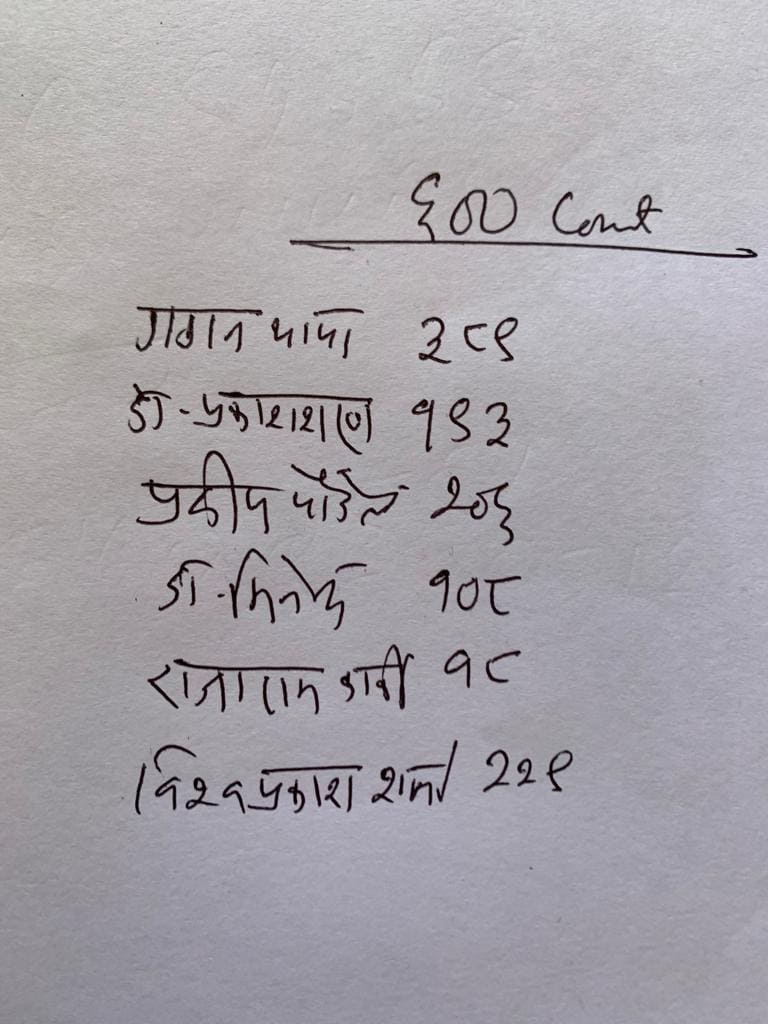 ६०० Count
गगन थापा ३८९
डा-प्रकाशशरण १९३
प्रदीप पौडेल २०६
डा-मिनेन्द्र १०८
राजाराम कार्की १८
विश्वप्रकाश शर्मा २२९